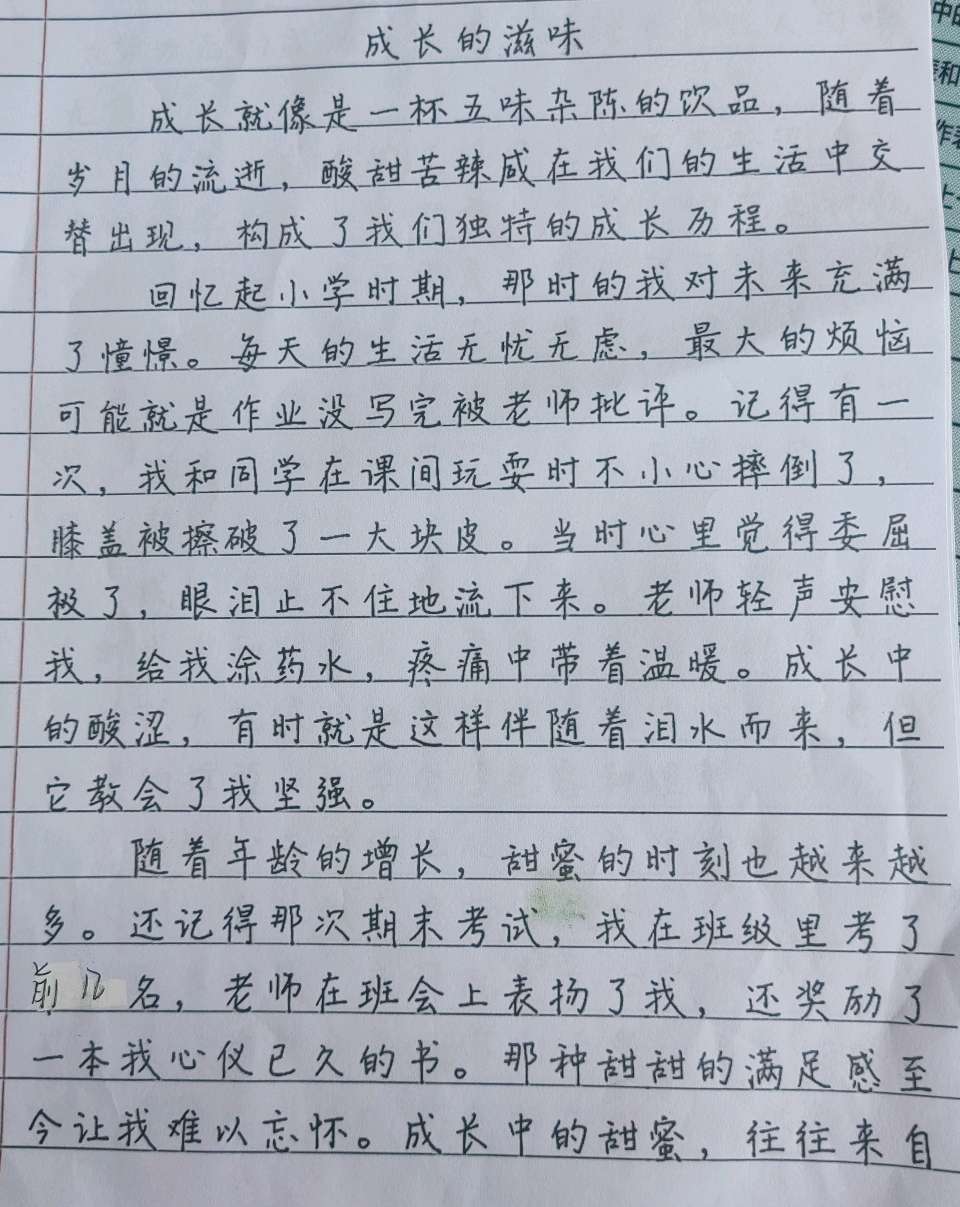 成长的滋味
成长就像是一杯五味杂陈的饮品，随着
岁月的流逝，酸甜苦辣咸在我们的生活中交
替出现，构成了我们独特的成长历程。
回忆起小学时期，那时的我对未来充满
了憧憬。每天的生活无忧无虑，最大的烦恼
可能就是作业没写完被老师批评。记得有一
次，我和同学在课间玩耍时不小心摔倒了，
膝盖被擦破了一大块皮。当时心里觉得委屈
极了，眼泪止不住地流下来。老师轻声安慰
我，给我涂药水，疼痛中带着温暖。成长中
的酸涩，有时就是这样伴随着泪水而来，但
它教会了我坚强。
随着年龄的增长，甜蜜的时刻也越来越
多。还记得那次期末考试，我在班级里考了
前几名，老师在班会上表扬了我，还奖励了
一本我心仪已久的书。那种甜甜的满足感至
今让我难以忘怀。成长中的甜蜜，往往来自
中的
和
作
上